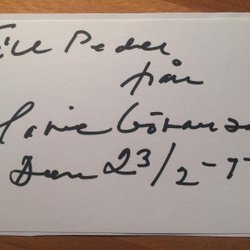 Till Peder
från
Marie Göranzon
Den 23/2-9